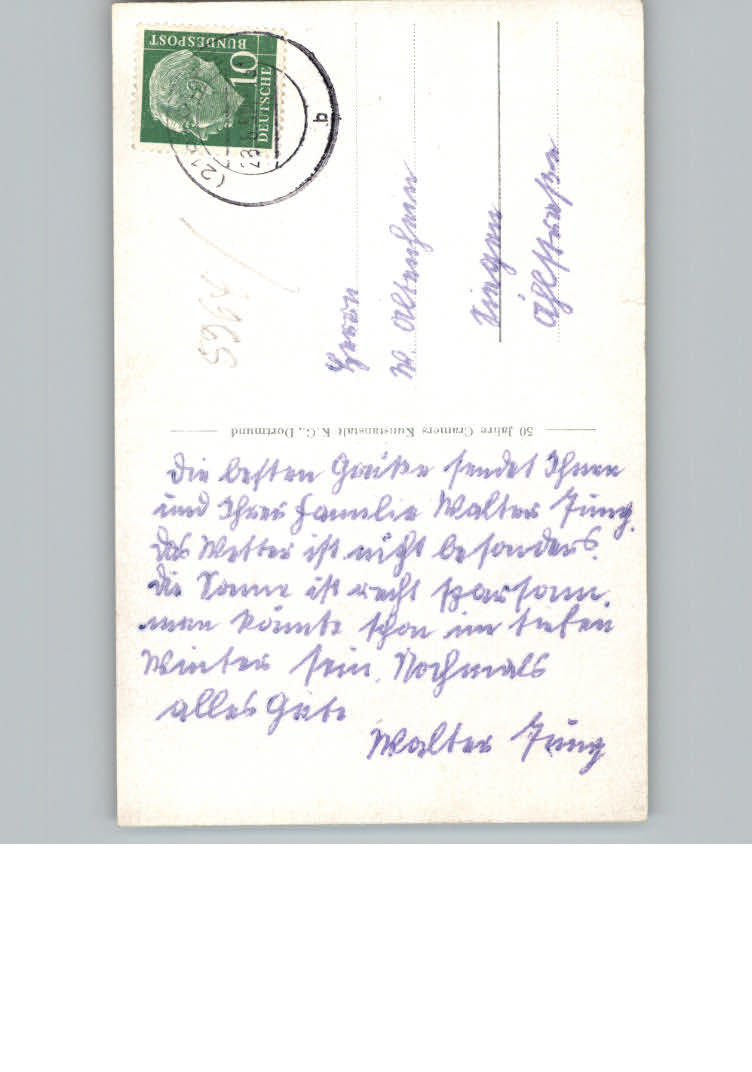 DEUTSCHE
BUNDESPOST
10
b
5965
Herrn
W. Altenhein
Siegen
50 Jahre Cramers Kunstanstalt K.G., Dortmund
Die besten Grüße sendet Ihnen
und Ihrer Familie Walter Jung.
Das Wetter ist nicht besonders.
Die Sonne ist recht sparsam.
man könnte schon im tiefen
Winter sein. Nochmals
alles Gute
Walter Jung